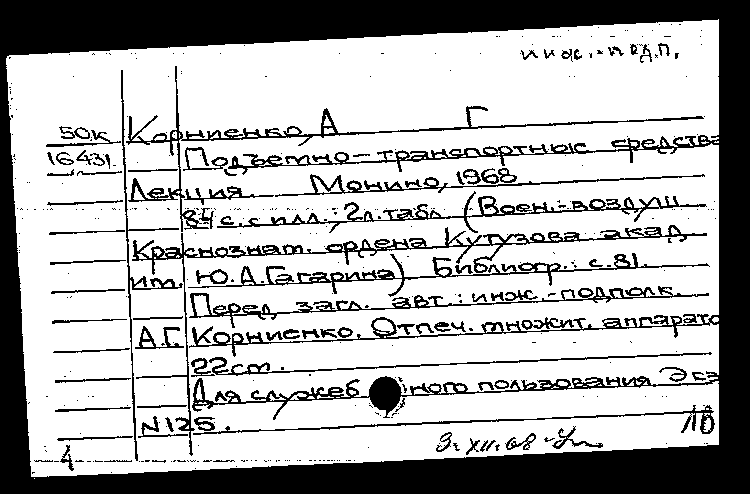 инж.-подп.
50к Корниенко, А Г
16431 Подъемно-транспортные средства
Лекция. Монино, 1968
84 с. с илл.; 2 л. табл. (Воен.-воздуш
Краснознам. ордена Кутузова акад.
им. Ю.А.Гагарина) Библиогр.: с. 81.
Перед загл. авт.: инж.-подполк.
А.Г. Корниенко. Отпеч. множит. аппарато
22 см.
Для служебного пользования. Экз
N 125.
4 3.XII.68 10